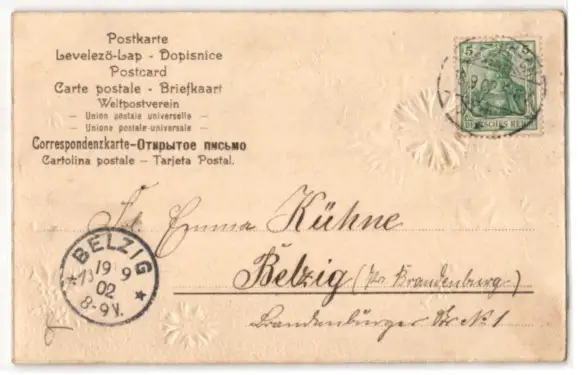 Postkarte
Levelezö-Lap - Dopisnice
Postcard
Carte postale - Briefkaart
Weltpostverein
— Union postale universelle —
— Unione postale-universale —
Correspondenzkarte–Открытое письмо
Cartolina postale – Tarjeta Postal.
5 5
DEUTSCHES REICH
Emma Kühne
Belzig (Brandenburg.)
Brandenbürger Str. № 1
BELZIG
19 9
02
8-9V.